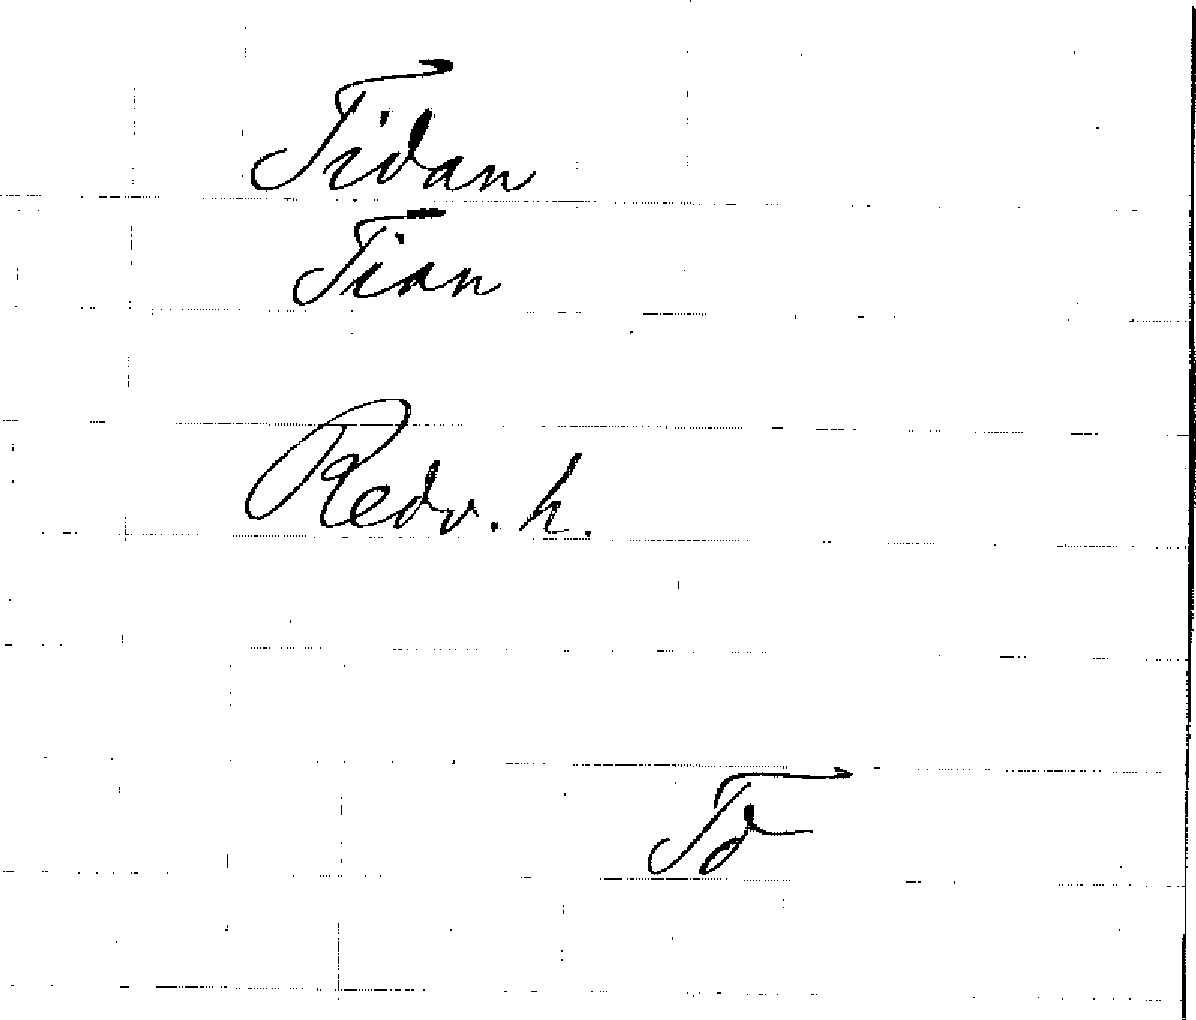 Tidan
Tian
Redv. h.
Td